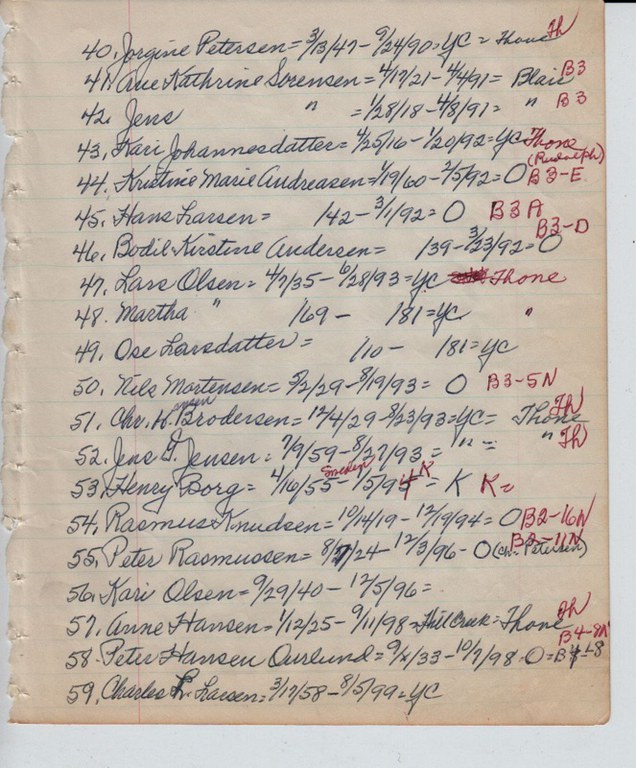 40. Jorgine Petersen = 3/13/47 - 9/24/90 = YC = Thone Th
41. Ane Kathrine Sorensen = 4/17/21 - 4/4/91 = Blair B3
42. Jens " = 1/28/18 - 4/8/91 = " B3
43. Kari Johannesdatter = 4/25/16 - 1/20/92 = YC Thone
(Rudolph)
44. Kristine Marie Andreasen = 1/19/60 - 2/5/92 = O B3-E
45. Hans Larsen = /42 - 3/1/92 = O B3A
46. Bodil Kirstine Andersen = /39 - 3/23/92 = O B3-D
47. Lars Olsen = 4/7/35 - 6/28/93 = YC Thone
48. Martha " /69 - /81 = YC "
49. Ose Larsdatter = /10 - /81 = YC
50. Nils Mortensen = 5/2/29 - 8/19/93 = O B3-5N
51. Chr. H. Brodersen = 12/4/29 - 8/23/93 = YC = Thone Th
52. Jens J. Jensen = 7/9/59 - 8/27/93 = " = " Th
53. Henry Borg = 4/16/55 - 1/5/94 K = K K=
54. Rasmus Knudsen = 10/14/19 - 12/19/94 = O B2-16N
55. Peter Rasmussen = 8/7/24 - 12/3/96 - O (Ch. Petersen) B2-11N
56. Kari Olsen = 9/29/40 - 12/5/96 =
57. Anne Hansen = 1/12/25 - 9/11/98 = Hill Creek = Thone Th
58. Peter Hansen Ourlund = 9/x/33 - 10/7/98 - O = B4-8 B4-8N
59. Charles L. Larsen = 3/17/58 - 8/5/99 = YC